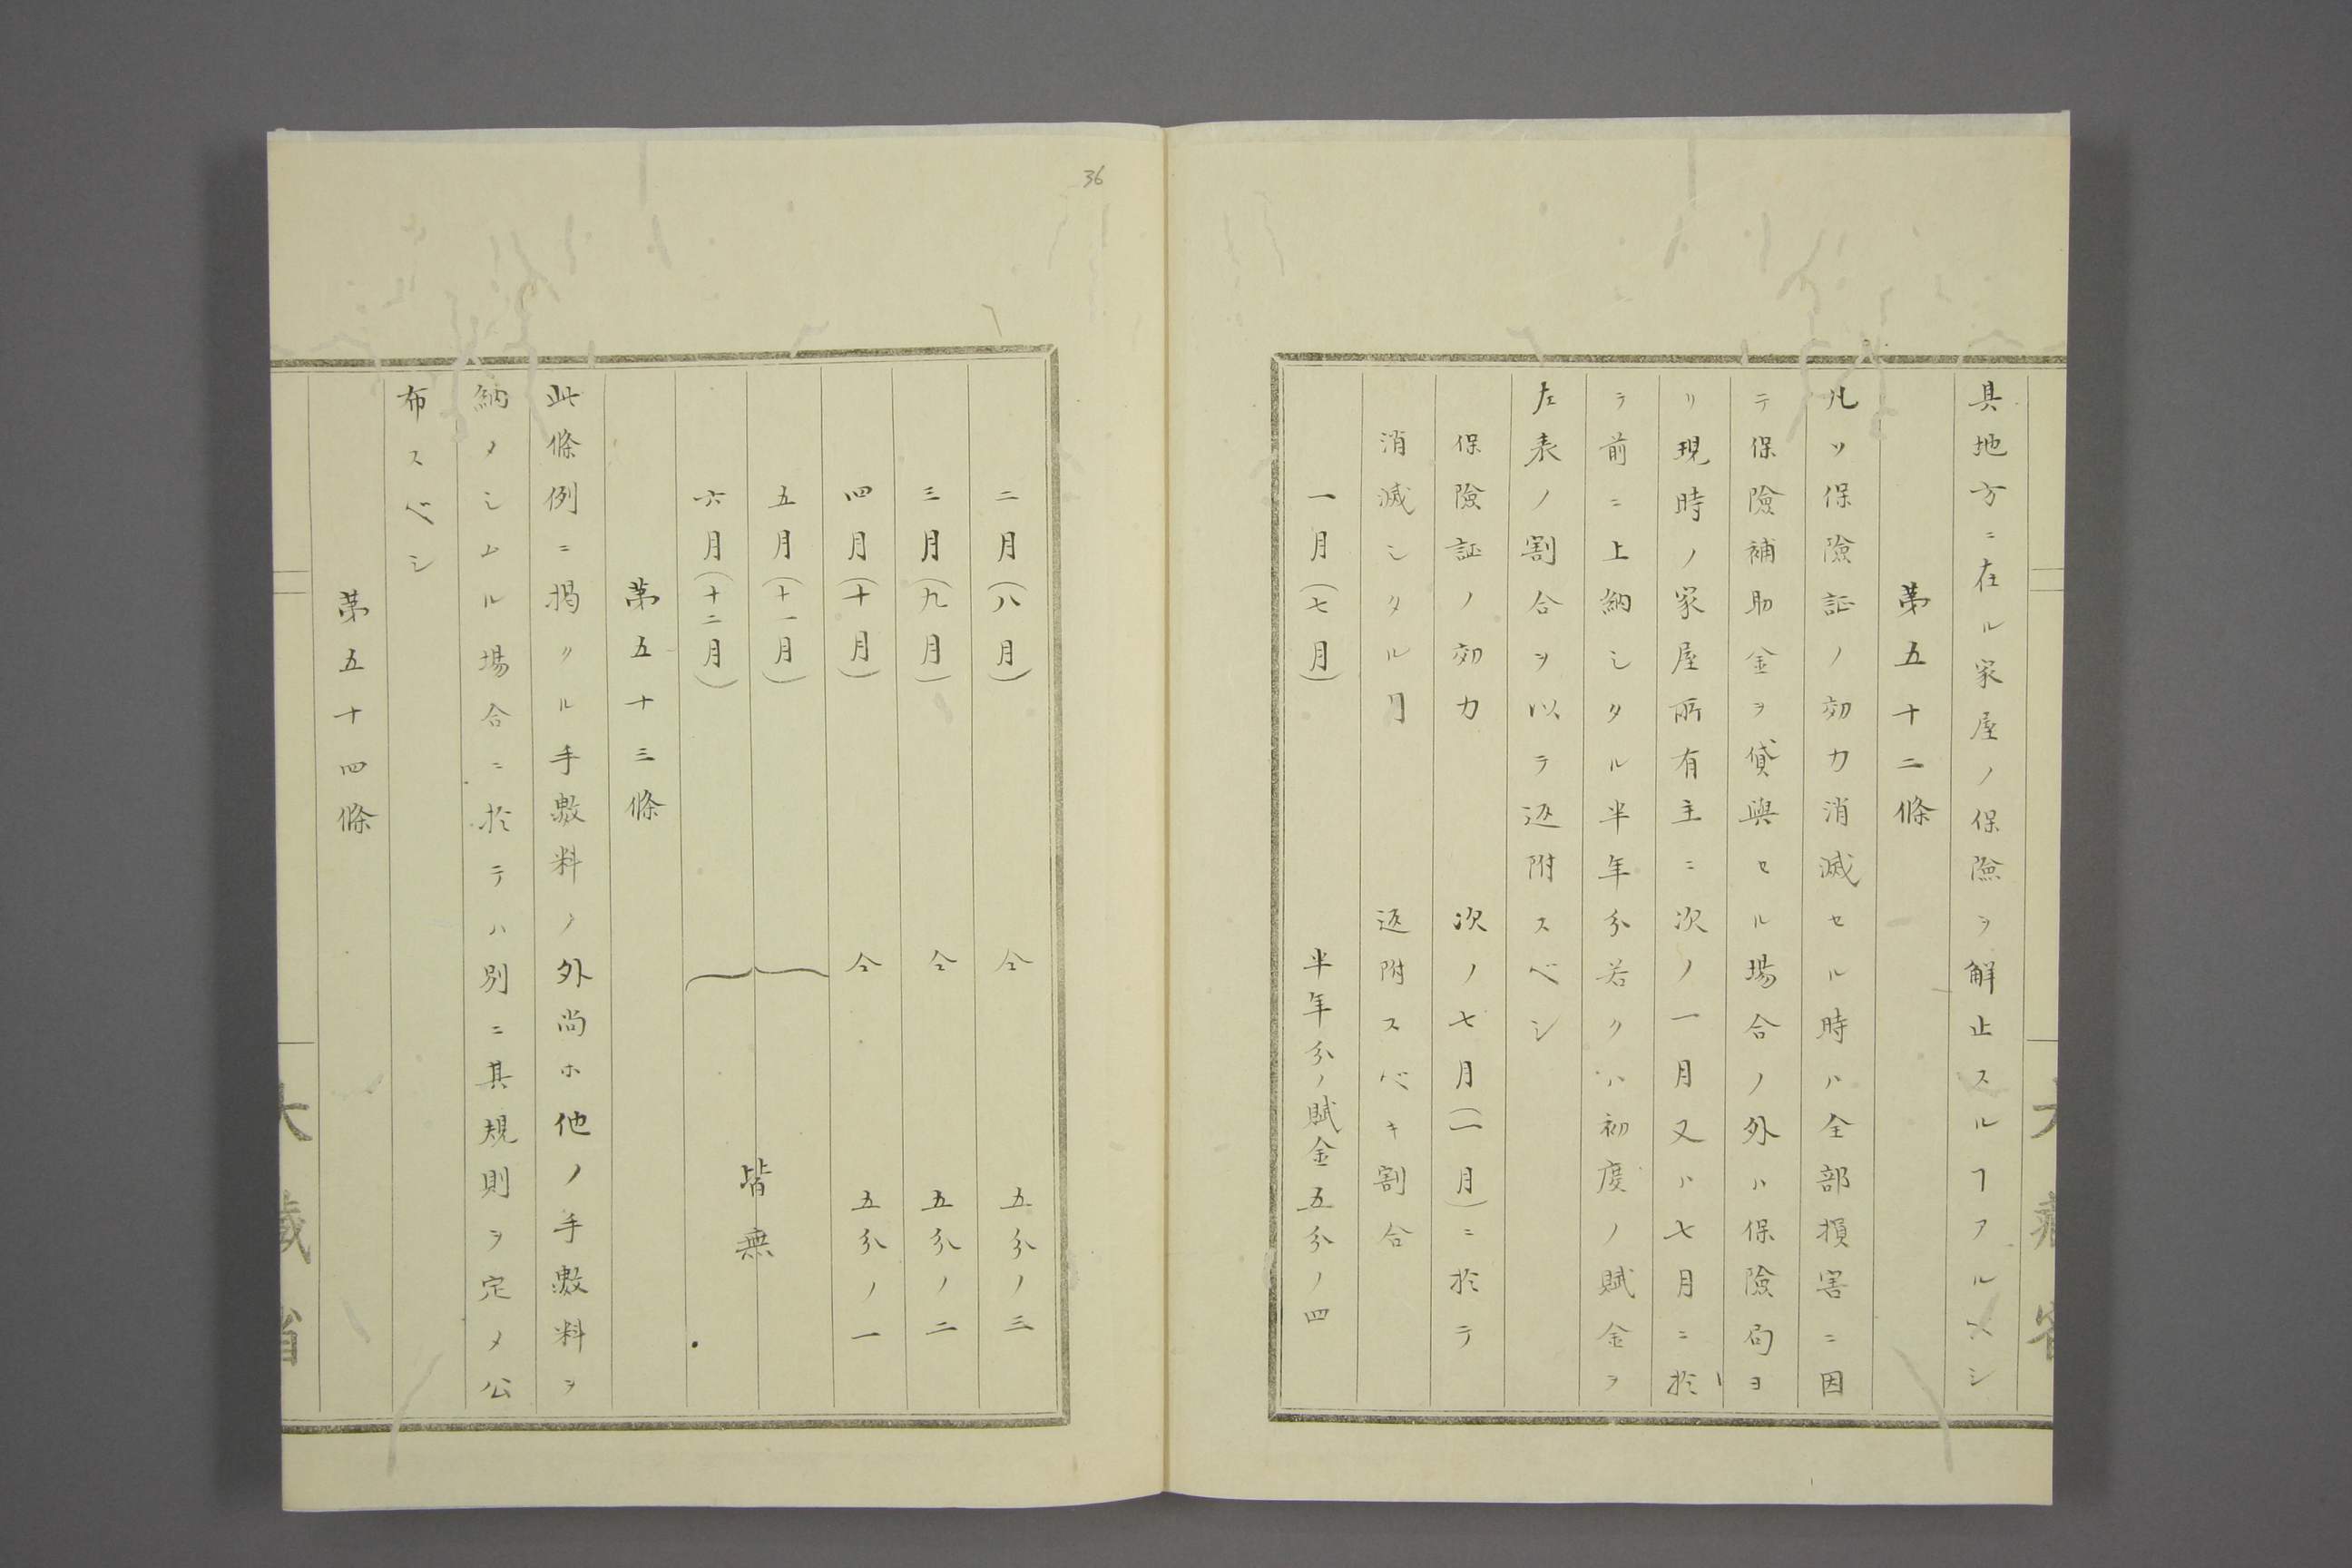 其地方ニ在ル家屋ノ保險ヲ解止スルヿアルベシ
第五十二條
凡ソ保險証ノ効力消滅セル時ハ全部損害ニ因
テ保險補助金ヲ貸與セル場合ノ外ハ保險局ヨ
リ現時ノ家屋所有主ニ次ノ一月又ハ七月ニ於
テ前ニ上納シタル半年分若クハ初度ノ賦金ヲ
左表ノ割合ヲ以テ返附スベシ
保險証ノ効力 次ノ七月(一月)ニ於テ
消滅シタル月 返附スベキ割合
一月(七月) 半年分ノ賦金五分ノ四
36
二月(八月) 仝 五分ノ三
三月(九月) 仝 五分ノ二
四月(十月) 仝 五分ノ一
五月(十一月)
六月(十二月)
皆無
第五十三條
此條例ニ掲クル手數料ノ外尚ホ他ノ手數料ヲ
納メシムル場合ニ於テハ別ニ其規則ヲ定メ公
布スベシ
第五十四條
大藏省